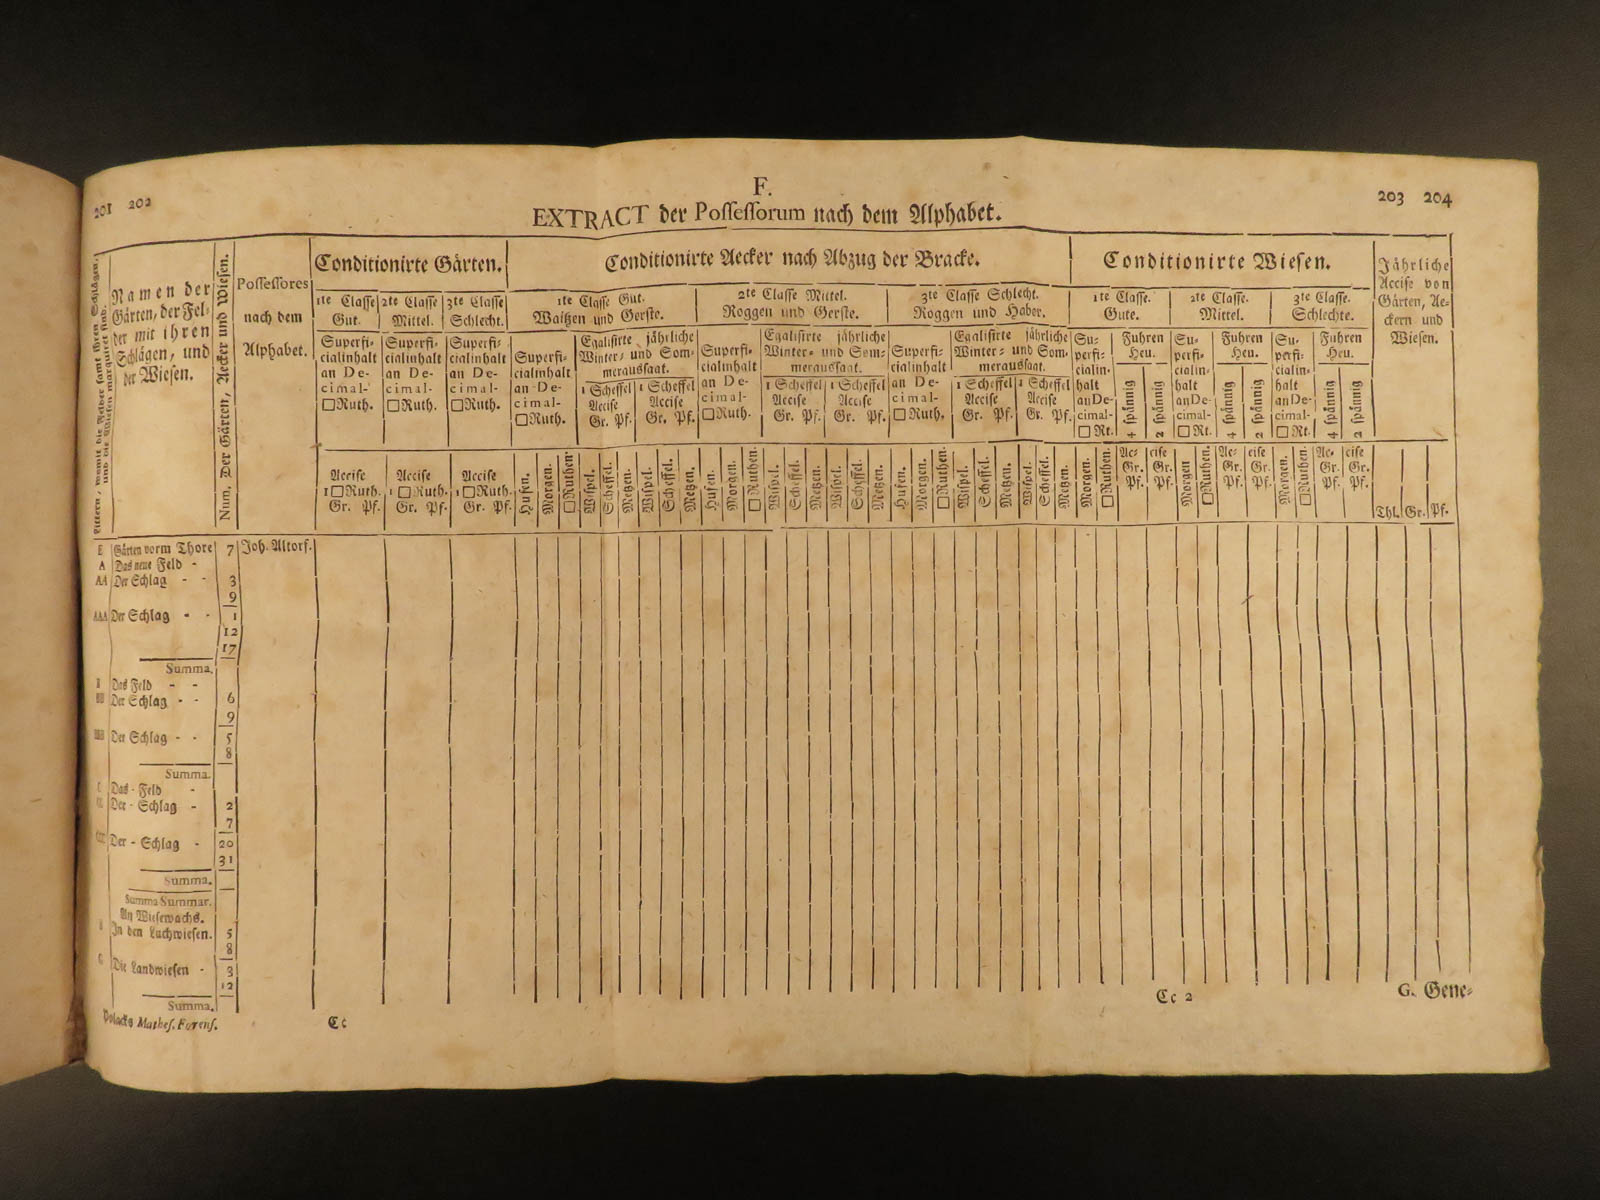 201 202
F.
203 204
EXTRACT der Possessorum nach dem Alphabet.
Littern, womit die Felder samt ihren Schlägen, und die Wiesen marquiret sind.
Namen der
Gärten, der Fel-
der mit ihren
Schlägen, und
der Wiesen.
Num. Der Gärten, Aecker und Wiesen.
Possessores
nach dem
Alphabet.
Conditionirte Gärten.
1te Classe
Gut.
2te Classe
Mittel.
3te Classe
Schlecht.
Superfi-
cialinhalt
an De-
cimal-
□Ruth.
Superfi-
cialinhalt
an De-
cimal-
□Ruth.
Superfi-
cialinhalt
an De-
cimal-
□Ruth.
Accise
1□Ruth.
Gr. Pf.
Accise
1□Ruth.
Gr. Pf.
Accise
1□Ruth.
Gr. Pf.
Conditionirte Aecker nach Abzug der Bracke.
1te Classe Gut.
Waitzen und Gerste.
2te Classe Mittel.
Roggen und Gerste.
3te Classe Schlecht.
Roggen und Haber.
Superfi-
cialinhalt
an De-
cimal-
□Ruth.
Egalisirte jährliche
Winter- und Som-
meraussaat.
1 Scheffel
Accise
Gr. Pf.
1 Scheffel
Accise
Gr. Pf.
Superfi-
cialinhalt
an De-
cimal-
□Ruth.
Egalisirte jährliche
Winter- und Som-
meraussaat.
1 Scheffel
Accise
Gr. Pf.
1 Scheffel
Accise
Gr. Pf.
Superfi-
cialinhalt
an De-
cimal-
□Ruth.
Egalisirte jährliche
Winter- und Som-
meraussaat.
1 Scheffel
Accise
Gr. Pf.
1 Scheffel
Accise
Gr. Pf.
Hufen. Morgen. □Ruthen. Wispel. Scheffel. Metzen. Wispel. Scheffel. Metzen. Hufen. Morgen. □Ruthen. Wispel. Scheffel. Metzen. Wispel. Scheffel. Metzen. Hufen. Morgen. □Ruthen. Wispel. Scheffel. Metzen. Wispel. Scheffel. Metzen.
Conditionirte Wiesen.
1te Classe.
Gute.
2te Classe.
Mittel.
3te Classe.
Schlechte.
Su-
perfi-
cialin-
halt
an De-
cimal-
□Rt.
Fuhren
Heu.
4 spännig
2 spännig
Su-
perfi-
cialin-
halt
an De-
cimal-
□Rt.
Fuhren
Heu.
4 spännig
2 spännig
Su-
perfi-
cialin-
halt
an De-
cimal-
□Rt.
Fuhren
Heu.
4 spännig
2 spännig
Morgen. □Ruthen.
Ac- cise
Gr. Gr.
Pf. Pf.
Morgen □Ruthen.
Ac- cise
Gr. Gr.
Pf. Pf.
Morgen. □Ruthen.
Ac- cise
Gr. Gr.
Pf. Pf.
Jährliche
Accise von
Gärten, Ae-
ckern und
Wiesen.
Thl. Gr. Pf.
E Gärten vorm Thore 7 Joh. Altorf.
A Das neue Feld -
AA Der Schlag - - 3
9
AAA Der Schlag - - 1
12
17
Summa.
Das Feld - -
Der Schlag - - 6
9
Der Schlag - - 5
8
Summa.
C Das - Feld -
CC Der - Schlag - 2
7
CCC Der - Schlag - 20
31
Summa.
Summa Summar.
An Wiesewachs.
In den Luchwiesen. 5
8
G Die Landwiesen - 3
12
Summa.
Polacks Mathes. Forens.
Cc
Cc 2
G. Gene-